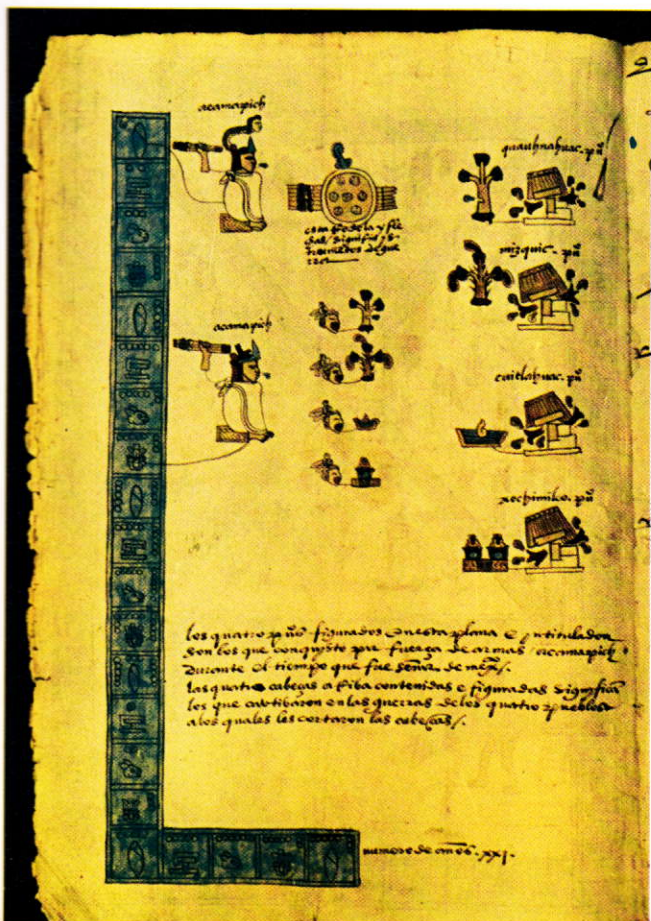 acamapich
quauhnahuac. pũ
esta Rodela y fle
chas / significã yns
trumentos de gue
rra
mizquic. pũ
acamapich
cuitlahuac. pũ
xochimilco. pũ
los quatro pũos figurados en esta plana E yntitulados
son los que conquisto por fuerça de armas / acamapich
Durante el tiempo que fue señor de mexco /.
las quatro cabeças a Riba contenidas e figuradas significã
los que cautibaron en las guerras de los quatro pueblos
a los quales les cortaron las cabeças /.
numero de años. xxj.